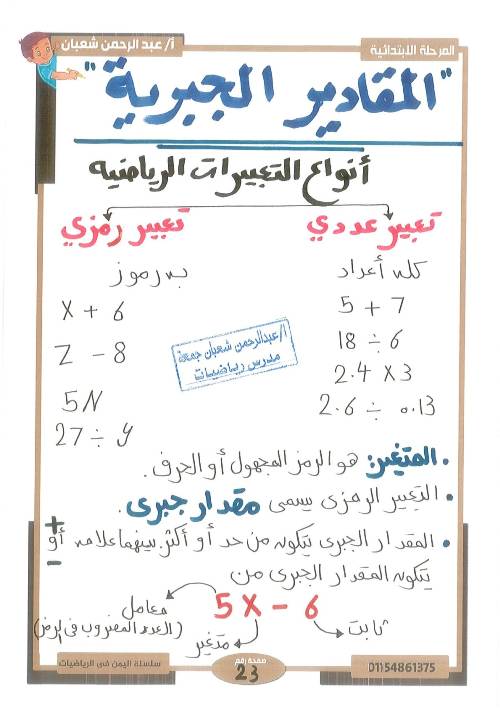 المرحلة الابتدائية
أ/ عبد الرحمن شعبان
"المقادير الجبرية"
أنواع التعبيرات الرياضيه
تعبير عددي تعبير رمزي
كله أعداد به رموز
5 + 7 X + 6
18 ÷ 6 Z - 8
2.4 X 3 5N
2.6 ÷ 0.13 27 ÷ y
أ/عبدالرحمن شعبان جمعة
مدرس رياضيات
• المتغير: هو الرمز المجهول أو الحرف.
• التعبير الرمزى يسمى مقدار جبرى.
• المقدار الجبرى يتكون من حد أو أكثر بينهما علامه + أو -
يتكون المقدار الجبرى من
5X - 6
معامل
(العدد المضروب فى الرمز)
متغير
ثابت
سلسلة اليمن فى الرياضيات
صفحة رقم
23
01154861375